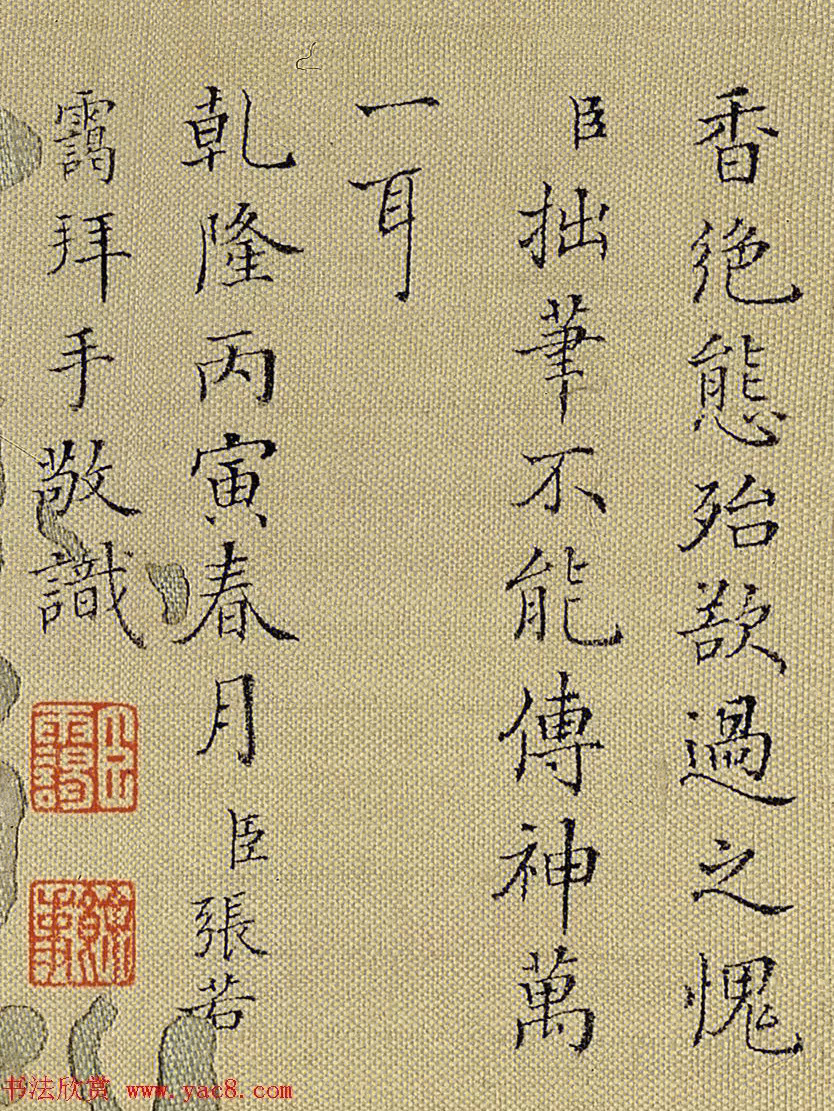 香絶態殆欲過之愧
臣拙筆不能傳神萬
一耳
乾隆丙寅春月臣張若
靄拜手敬識
书法欣赏 www.yac8.com